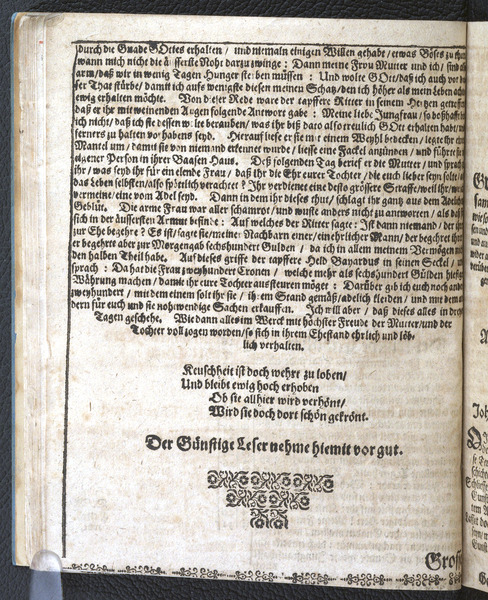 durch die Gnade GOttes erhalten / und niemaln einigen Willen gehabt / etwas Böses zu thun
wann mich nicht die äusserste Noht darzu zwinge : Dann meine Frau Mutter und ich / sind
arm / daß wir in wenig Tagen Hunger sterben müssen : Und wolte GOtt / daß ich auch vor
ser That stürbe / damit ich aufs wenigste diesen meinen Schatz / den ich höher als mein Leben
ewig erhalten möchte. Von dieser Rede ware der tapffere Ritter in seinem Hertzen getroffen
daß er ihr mit weinenden Augen folgende Antwort gabe : Meine liebe Jungfrau / so boßhafft
ich nicht / daß ich sie dessen wolte berauben / was ihr biß daro also treulich GOtt erhalten habt
ferners zu halten vorhabens seyd. Hierauf liesse er sie mit einem Weyhl bedecken / legte ihr
Mantel um / damit sie von niemand erkennet wurde / liesse eine Fackel anzünden / und führte sie
eigener Person in ihrer Baasen Haus. Deß folgenden Tag berief er die Mutter / und sprach
ihr / was seyd ihr für ein elende Frau / daß ihr die Ehr eurer Tochter / die euch lieber seyn solte
das Leben selbsten / also spöttlich verachtet ? Ihr verdienet eine desto grössere Straffe / weil ihr
vermeine / eine vom Adel seyd. Dann in dem ihr dieses thut / schlagt ihr gantz aus dem Adelichen
Geblüt. Die arme Frau war aller schamrot / und wuste anders nicht zu antworten / als daß
sich in der äussersten Armut befinde : Auf welches der Ritter sagte : Ist dann niemand / der
zur Ehe begehre ? Es ist / sagte sie / meiner Nachbarn einer / ein ehrlicher Mann / der begehret
er begehrt aber zur Morgengab sechshundert Gulden / da ich in allem meinem Vermögen
den halben Theil habe. Auf dieses griffe der tapffere Held Bayardus in seinen Seckel /
sprach : Da hat die Frau zweyhundert Cronen / welche mehr als sechshundert Gülden
Währung machen / damit ihr eure Tochter aussteuren möget : Darüber gib ich euch noch
zweyhundert / mit dem einem solt ihr sie / ihrem Stand gemäß / adelich kleiden / und mit dem
dern für euch und sie nohtwendige Sachen erkauffen. Ich will aber / daß dieses alles in
Tagen geschehe. Wie dann alles im Werck mit höchster Freude der Mutter / und der
Tochter vollzogen worden / so sich in ihrem Ehestand ehrlich und löb-
lich verhalten.
Keuschheit ist doch wehrt zu loben /
Und bleibt ewig hoch erhoben
Ob sie allhier wird verhönt /
Wird sie doch dort schön gekrönt.
Der Günstige Leser nehme hiemit vor gut.